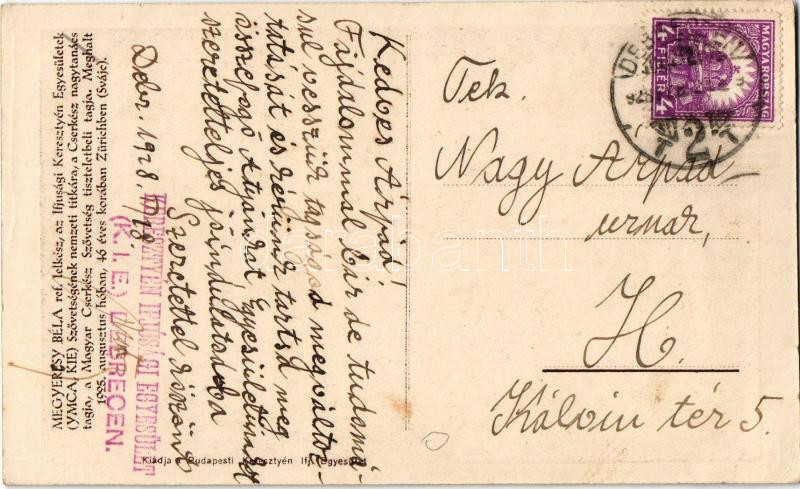 MEGYERCSY BÉLA ref. lelkész, az Ifjusági Keresztyén Egyesületek
(YMCA, KIE) Szövetségének nemzeti titkára, a Cserkész nagytanács
tagja, a Magyar Cserkész Szövetség tiszteletbeli tagja. Meghalt
1925. augusztus hóban, 46 éves korában Zürichben (Svájc).
KERESZTYÉN IFJUSÁGI EGYESÜLET
(K. I. E.) DEBRECEN.
Kedves Árpád!
Fájdalommal bár de tudomá-
sul vesszük tagságod megváltoz-
tatását és kérünk tartsd meg
összefogó Atyánkat Egyesületünket
szeretetteljes jóindulatodba
Szeretettel köszönt
Debr. 1928.
Kiadja a Budapesti Keresztyén Ifj. Egyesület
MAGYARORSZÁG
4 FILLÉR 4
DEBRECEN
2
Tek.
Nagy Árpád
urnak,
H.
Kálvin tér 5.
carabanth